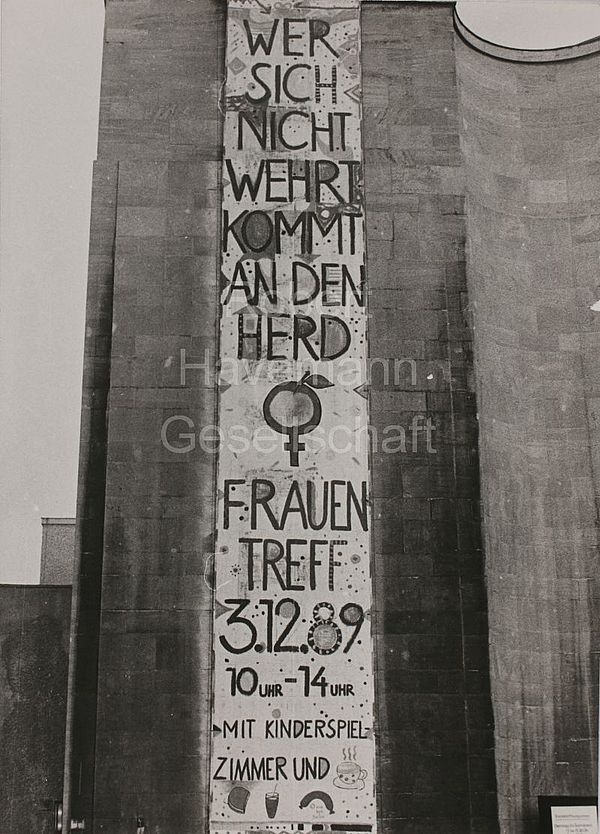 WER
SICH
NICHT
WEHRT
KOMMT
AN DEN
HERD
Havemann
Gesellschaft
FRAUEN
TREFF
3.12.89
10 UHR - 14 UHR
MIT KINDERSPIEL-
ZIMMER UND